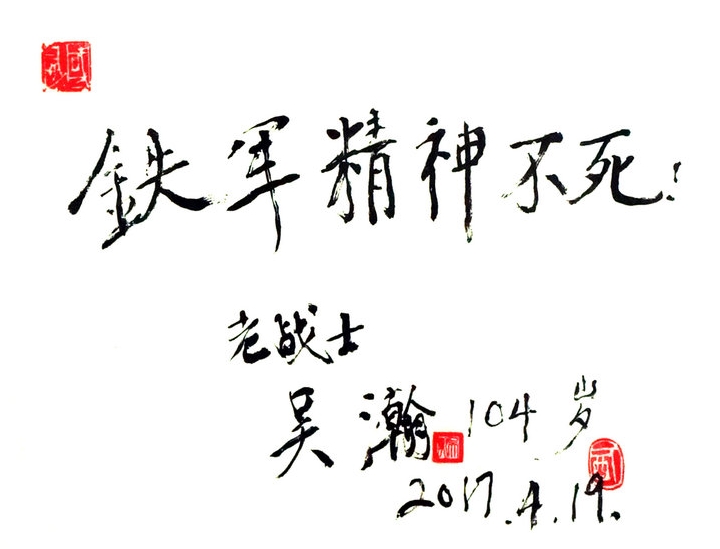 鉄军精神不死!
老战士
吴瀚 104岁
2017.4.19.